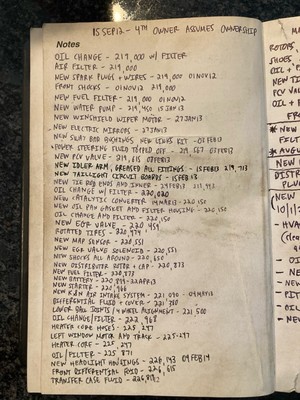 15SEP12 - 4TH OWNER ASSUMES OWNERSHIP
Notes
OIL CHANGE - 219,000 W/ FILTER
AIR FILTER - 219,000
NEW SPARK PLUGS + WIRES - 219,000 01NOV12
FRONT SHOCKS - 01NOV12 219,000
NEW FUEL FILTER - 219,000 01NOV12
NEW WATER PUMP - 219,450 15JAN13
NEW WINDSHIELD WIPER MOTOR - 27JAN13
NEW ELECTRIC MIRRORS - 27JAN13
NEW SWAY BAR BUSHINGS NEW LIGHTS KIT - 01FEB13
POWER STEERING FLUID TOPPED OFF - 219,567 03FEB13
NEW PCV VALVE - 219,615 08FEB13
NEW IDLER ARM, GREASED ALL FITTINGS - 15FEB13 219,713
NEW TAILLIGHT CIRCUIT BOARDS - 15FEB13
NEW TIE ROD ENDS AND INNER - 24FEB13 219,993
OIL CHANGE W/ FILTER - 220,020
NEW CATALYTIC CONVERTER 14MAR13 - 220,150
NEW OIL PAN GASKET AND FILTER HOUSING - 220,150
OIL CHANGE AND FILTER - 220,150
NEW EGR VALVE - 220,459
ROTATED TIRES - 220,474
NEW MAP SENSOR - 220,551
NEW EGR VALVE SOLENOID - 220,551
NEW SHOCKS ALL AROUND - 220,650
NEW DISTRIBUTOR ROTOR + CAP - 220,873
NEW FUEL FILTER - 220,877
NEW BATTERY - 220,899 - 22APR13
NEW STARTER - 220,968
NEW K&N AIR INTAKE SYSTEM - 221,090 - 04MAY13
DIFFERENTIAL FLUID + COVER - 221,350
LOWER BALL JOINTS / 4 WHEEL ALIGNMENT - 221,500
OIL CHANGE/FILTER - 222,968
HEATER CORE HOSES - 225,247
LEFT WINDOW MOTOR AND TRACK - 225,247
HEATER CORE - 225,247
OIL/FILTER - 225,871
NEW HEADLIGHT HOUSINGS - 226,143 09FEB14
FRONT DIFFERENTIAL FLUID - 226,615
TRANSFER CASE FLUID -